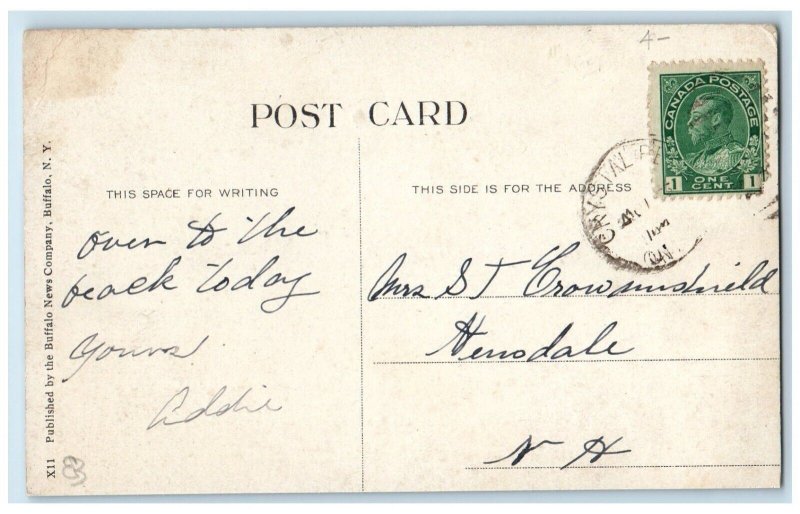 4-
POST CARD
CANADA POSTAGE
1 ONE CENT 1
CRYSTAL
ON
THIS SPACE FOR WRITING
THIS SIDE IS FOR THE ADDRESS
over to the
beach today
Yours
Addie
Mrs S T Crowninshield
Hensdale
N H
X11 Published by the Buffalo News Company, Buffalo, N. Y.